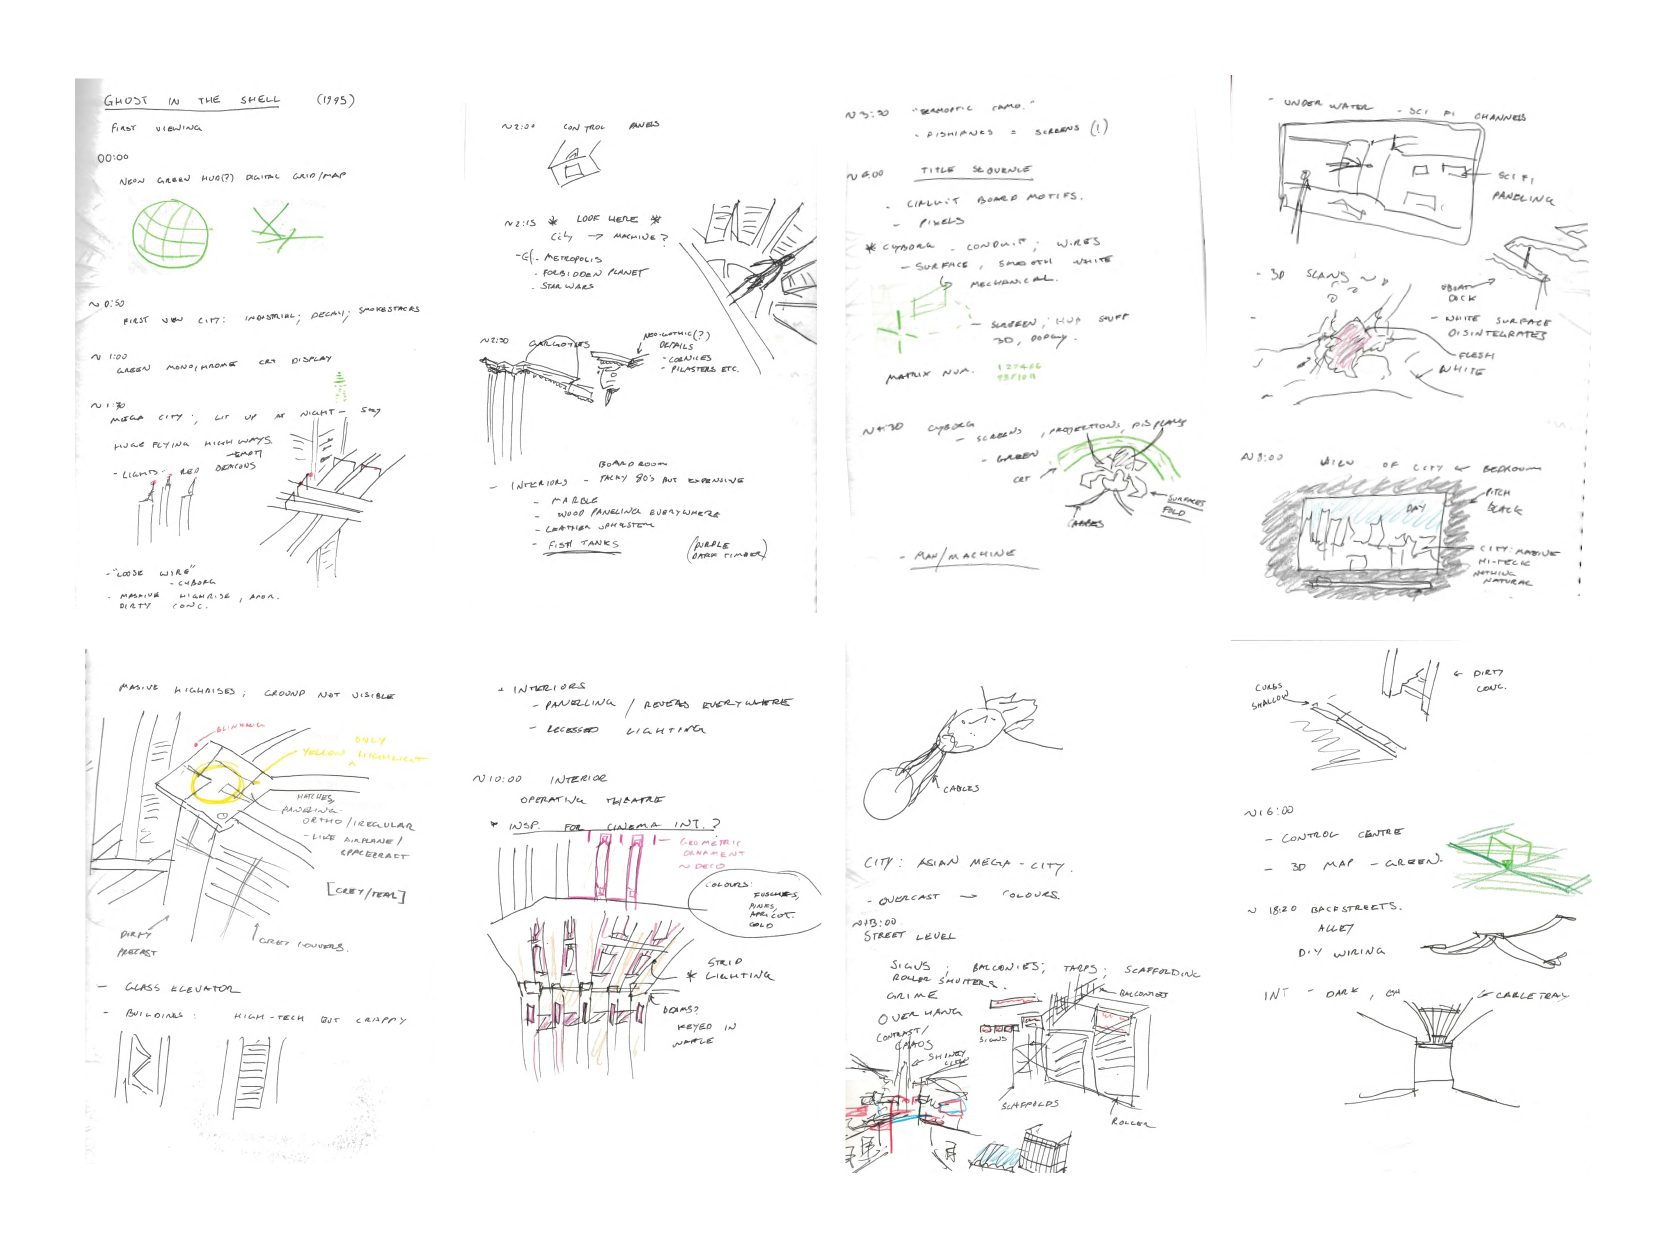 GHOST IN THE SHELL (1995)
FIRST VIEWING
00:00
NEON GREEN HUD(?) DIGITAL GRID/MAP
~ 0:50
FIRST VIEW CITY: INDUSTRIAL; DECAY; SMOKESTACKS
~ 1:00
GREEN MONOCHROME CRT DISPLAY
~ 1:30
MEGA CITY; LIT UP AT NIGHT - SKY
HUGE FLYING HIGHWAYS.
- EMPTY
- LIGHTS - RED BEACONS
- "LOOSE WIRE"
- CYBORG
- MASSIVE HIGHRISE, APDR.
DIRTY CONC.
~2:00 CONTROL PANELS
~2:15 * LOOK HERE *
CITY → MACHINE?
- METROPOLIS
- FORBIDDEN PLANET
- STAR WARS
~2:30 GARGOYLES
NEO-GOTHIC(?)
DETAILS
- CORNICES
- PILASTERS ETC.
BOARDROOM
- INTERIORS - TACKY 80'S BUT EXPENSIVE
- MARBLE
- WOOD PANELING EVERYWHERE
- LEATHER UPHOLSTERY
- FISH TANKS
(PURPLE
DARK TIMBER)
~3:30 "THERMOPTIC CAMO."
- FISHTANKS = SCREENS (!)
TITLE SEQUENCE
- CIRCUIT BOARD MOTIFS.
- PIXELS
* CYBORG - CONDUIT; WIRES
- SURFACE, SMOOTH WHITE
MECHANICAL.
- SCREEN; HUD STUFF
3D, DODGY.
MATRIX NUM.
CYBORG
- SCREENS, PROJECTIONS, DISPLAYS
- GREEN
CRT
SURFACES
FOLD
- MAN/MACHINE
- UNDER WATER - SCI FI CHANNELS
SCI FI
PANELING
- 3D SCANS
BOAT
DOCK
- WHITE SURFACE
DISINTEGRATES
FLESH
WHITE
~8:00 VIEW OF CITY & BEDROOM
PITCH
BLACK
DAY
CITY: MASSIVE
HI-TECH
NOTHING
NATURAL
MASSIVE HIGHRISES; GROUND NOT VISIBLE
BLINKING
ONLY
YELLOW HIGHLIGHT
HATCHES,
PANELING
ORTHO/IREGULAR
- LIKE AIRPLANE/
SPACECRAFT
[GREY/TEAL]
DIRTY
PRECAST
GREY LOUVERS.
- GLASS ELEVATOR
- BUILDINGS: HIGH-TECH BUT CRAPPY
+ INTERIORS
- PANELLING / REVEALS EVERYWHERE
- RECESSED LIGHTING
~10:00 INTERIOR
OPERATING THEATRE
* INSP. FOR CINEMA INT.?
GEOMETRIC
ORNAMENT
~ DECO
COLOURS:
FUSCHIAS,
PINKS,
APRICOT.
GOLD
STRIP
* LIGHTING
BEAMS?
KEYED IN
WAFFLE
CABLES
CITY: ASIAN MEGA-CITY.
- OVERCAST → COLOURS.
~13:00
STREET LEVEL
SIGNS; BALCONIES; TARPS; SCAFFOLDING
ROLLER SHUTTERS.
GRIME
OVERHANG
CONTRAST/
CHAOS
BALCONIES
SIGNS
SHINEY
SCAFFOLDS
ROLLER
CURBS
SHALLOW
DIRTY
CONC.
~16:00
- CONTROL CENTRE
- 3D MAP - GREEN.
~ 18:20 BACKSTREETS.
ALLEY
DIY WIRING
INT - DARK,
CABLE TRAY